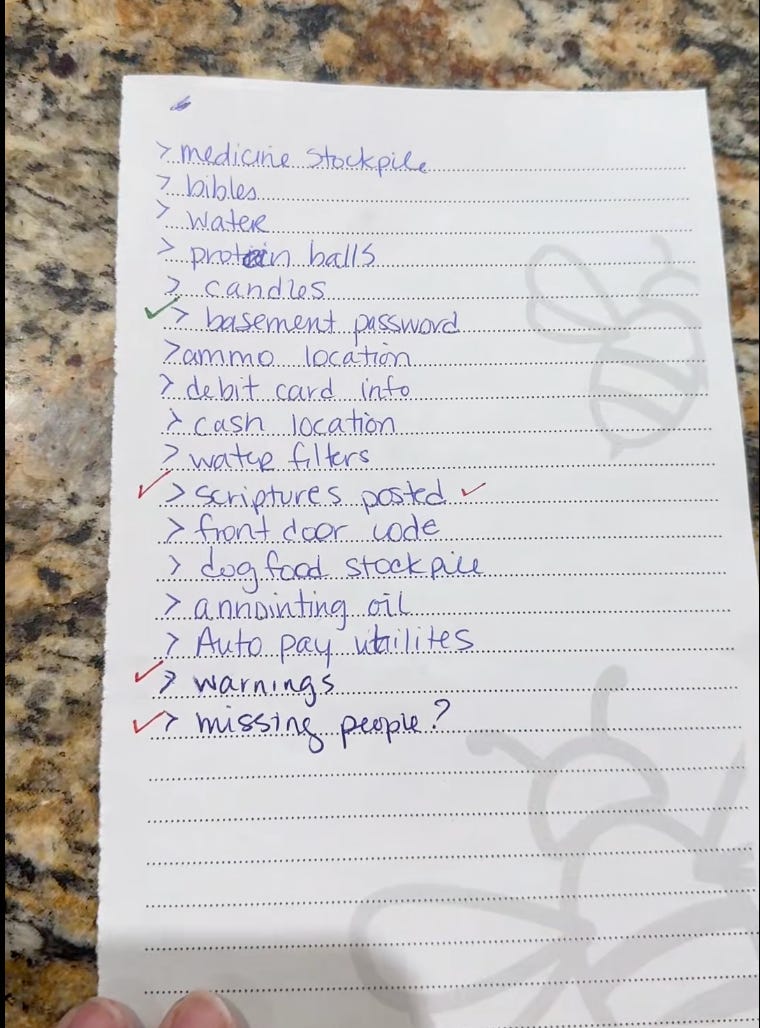 > medicine stockpile
> bibles
> water
> protein balls
> candles
✓ > basement password
> ammo location
> debit card info
> cash location
> water filters
✓ > scriptures posted ✓
> front door code
> dog food stockpile
> annointing oil
> Auto pay utilites
✓ > warnings
✓ > missing people?